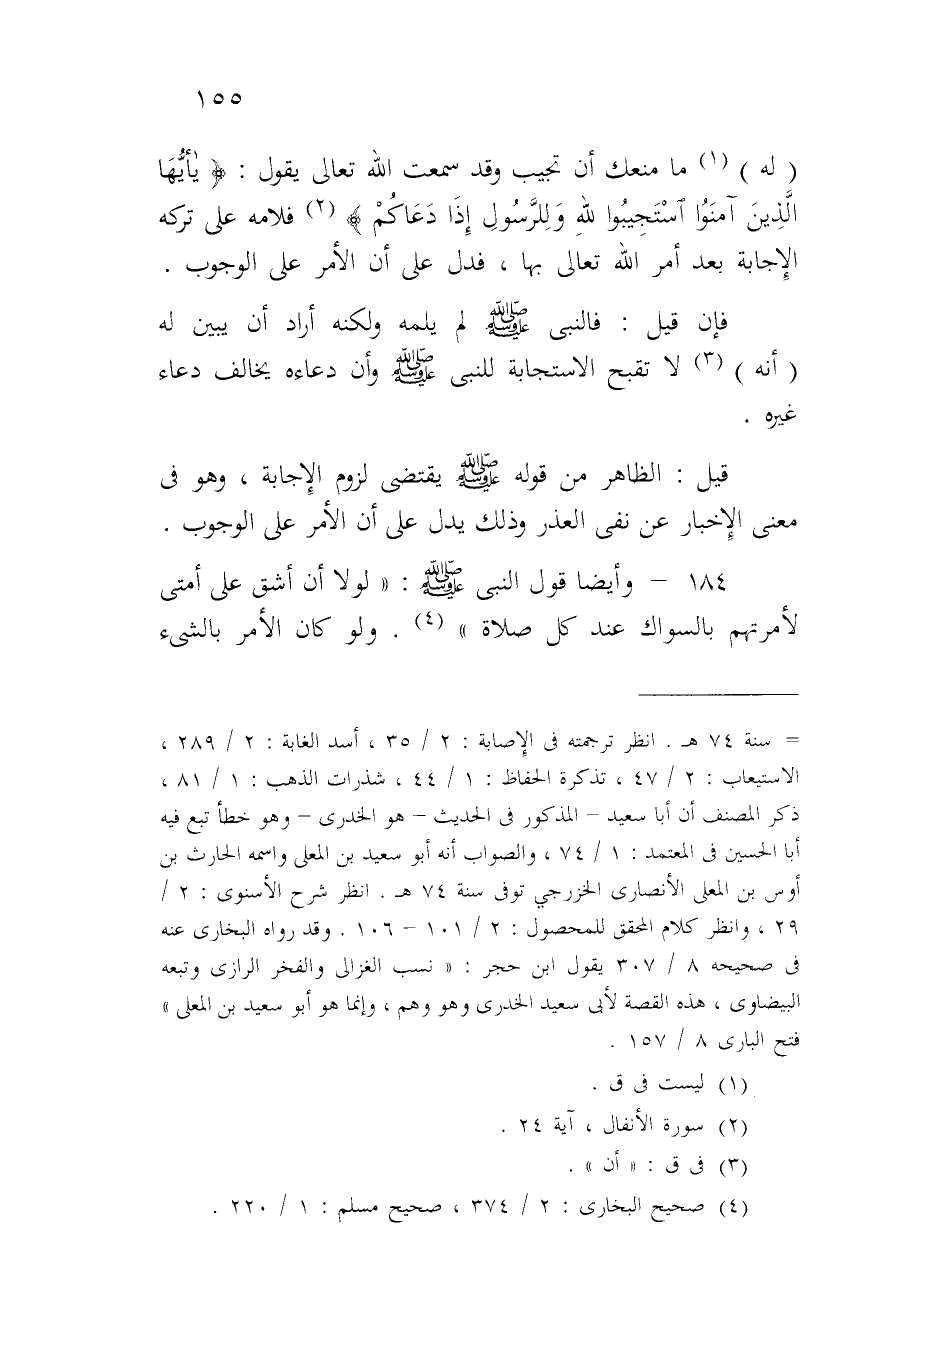 ١٥٥
( له ) (١) ما منعك أن تجيب وقد سمعت الله تعالى يقول : ﴿ يٰأَيُّهَا
الَّذِينَ آمَنُوا ٱسْتَجِيبُوا للهِ وَلِلرَّسُولِ إِذَا دَعَاكُمْ ﴾ (٢) فلامه على تركه
الإجابة بعد أمر الله تعالى بها ، فدل على أن الأمر على الوجوب .
فإن قيل : فالنبى ﷺ لم يلمه ولكنه أراد أن يبين له
( أنه ) (٣) لا تقبح الاستجابة للنبى ﷺ وأن دعاءه يخالف دعاء
غيره .
قيل : الظاهر من قوله ﷺ يقتضى لزوم الإجابة ، وهو فى
معنى الإخبار عن نفى العذر وذلك يدل على أن الأمر على الوجوب .
١٨٤ – وأيضا قول النبى ﷺ : « لولا أن أشق على أمتى
لأمرتهم بالسواك عند كل صلاة » (٤) . ولو كان الأمر بالشىء
= سنة ٧٤ هـ . انظر ترجمته فى الإصابة : ٢ / ٣٥ ، أسد الغابة : ٢ / ٢٨٩ ،
الاستيعاب : ٢ / ٤٧ ، تذكرة الحفاظ : ١ / ٤٤ ، شذرات الذهب : ١ / ٨١ ،
ذكر المصنف أن أبا سعيد – المذكور فى الحديث – هو الخدرى – وهو خطأ تبع فيه
أبا الحسين فى المعتمد : ١ / ٧٤ ، والصواب أنه أبو سعيد بن المعلى واسمه الحارث بن
أوس بن المعلى الأنصارى الخزرجي توفى سنة ٧٤ هـ . انظر شرح الأسنوى : ٢ /
٢٩ ، وانظر كلام المحقق للمحصول : ٢ / ١٠١ – ١٠٦ . وقد رواه البخارى عنه
فى صحيحه ٨ / ٣٠٧ يقول ابن حجر : « نسب الغزالى والفخر الرازى وتبعه
البيضاوى ، هذه القصة لأبى سعيد الخدرى وهو وهم ، وإنما هو أبو سعيد بن المعلى »
فتح البارى ٨ / ١٥٧ .
(١) ليست فى ق .
(٢) سورة الأنفال ، آية ٢٤ .
(٣) فى ق : « أن » .
(٤) صحيح البخارى : ٢ / ٣٧٤ ، صحيح مسلم : ١ / ٢٢٠ .